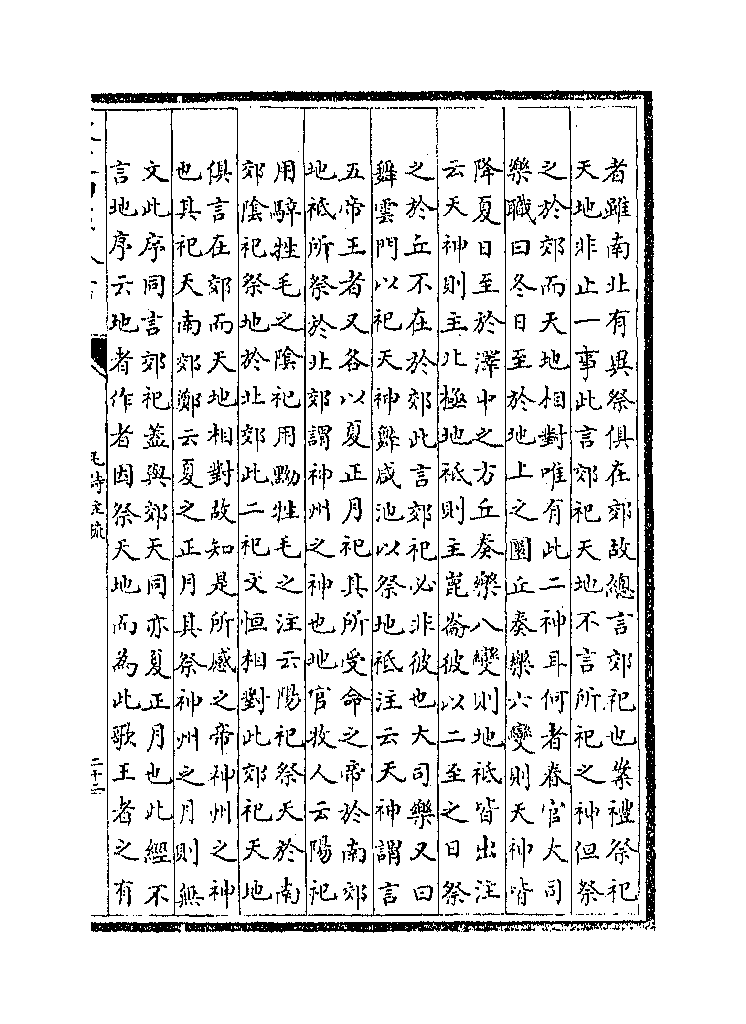 者雖南北有異祭俱在郊故總言郊祀也案禮祭祀
天地非止一事此言郊祀天地不言所祀之神但祭
之於郊而天地相對唯有此二神耳何者春官大司
樂職曰冬日至於地上之圜丘奏樂六變則天神皆
降夏日至於澤中之方丘奏樂八變則地祗皆出注
云天神則主北極地祗則主崑崙彼以二至之日祭
之於丘不在於郊此言郊祀必非彼也大司樂又曰
舞雲門以祀天神舞咸池以祭地祗注云天神謂言
五帝王者又各以夏正月祀其所受命之帝於南郊
地祗所祭於北郊謂神州之神也地官牧人云陽祀
用騂牲毛之陰祀用黝牲毛之注云陽祀祭天於南
郊陰祀祭地於北郊此二祀文恒相對此郊祀天地
俱言在郊而天地相對故知是所感之帝神州之神
也其祀天南郊鄭云夏之正月其祭神州之月則無
文此序同言郊祀蓋與郊天同亦夏正月也此經不
言地序云地者作者因祭天地而為此歌王者之有
毛詩注疏
二十二